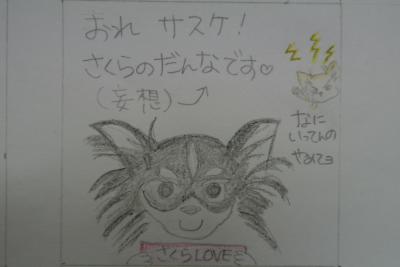 おれ サスケ!
さくらのだんなです♡
(妄想)
なに
いってんの
やめてョ
さくらLOVE